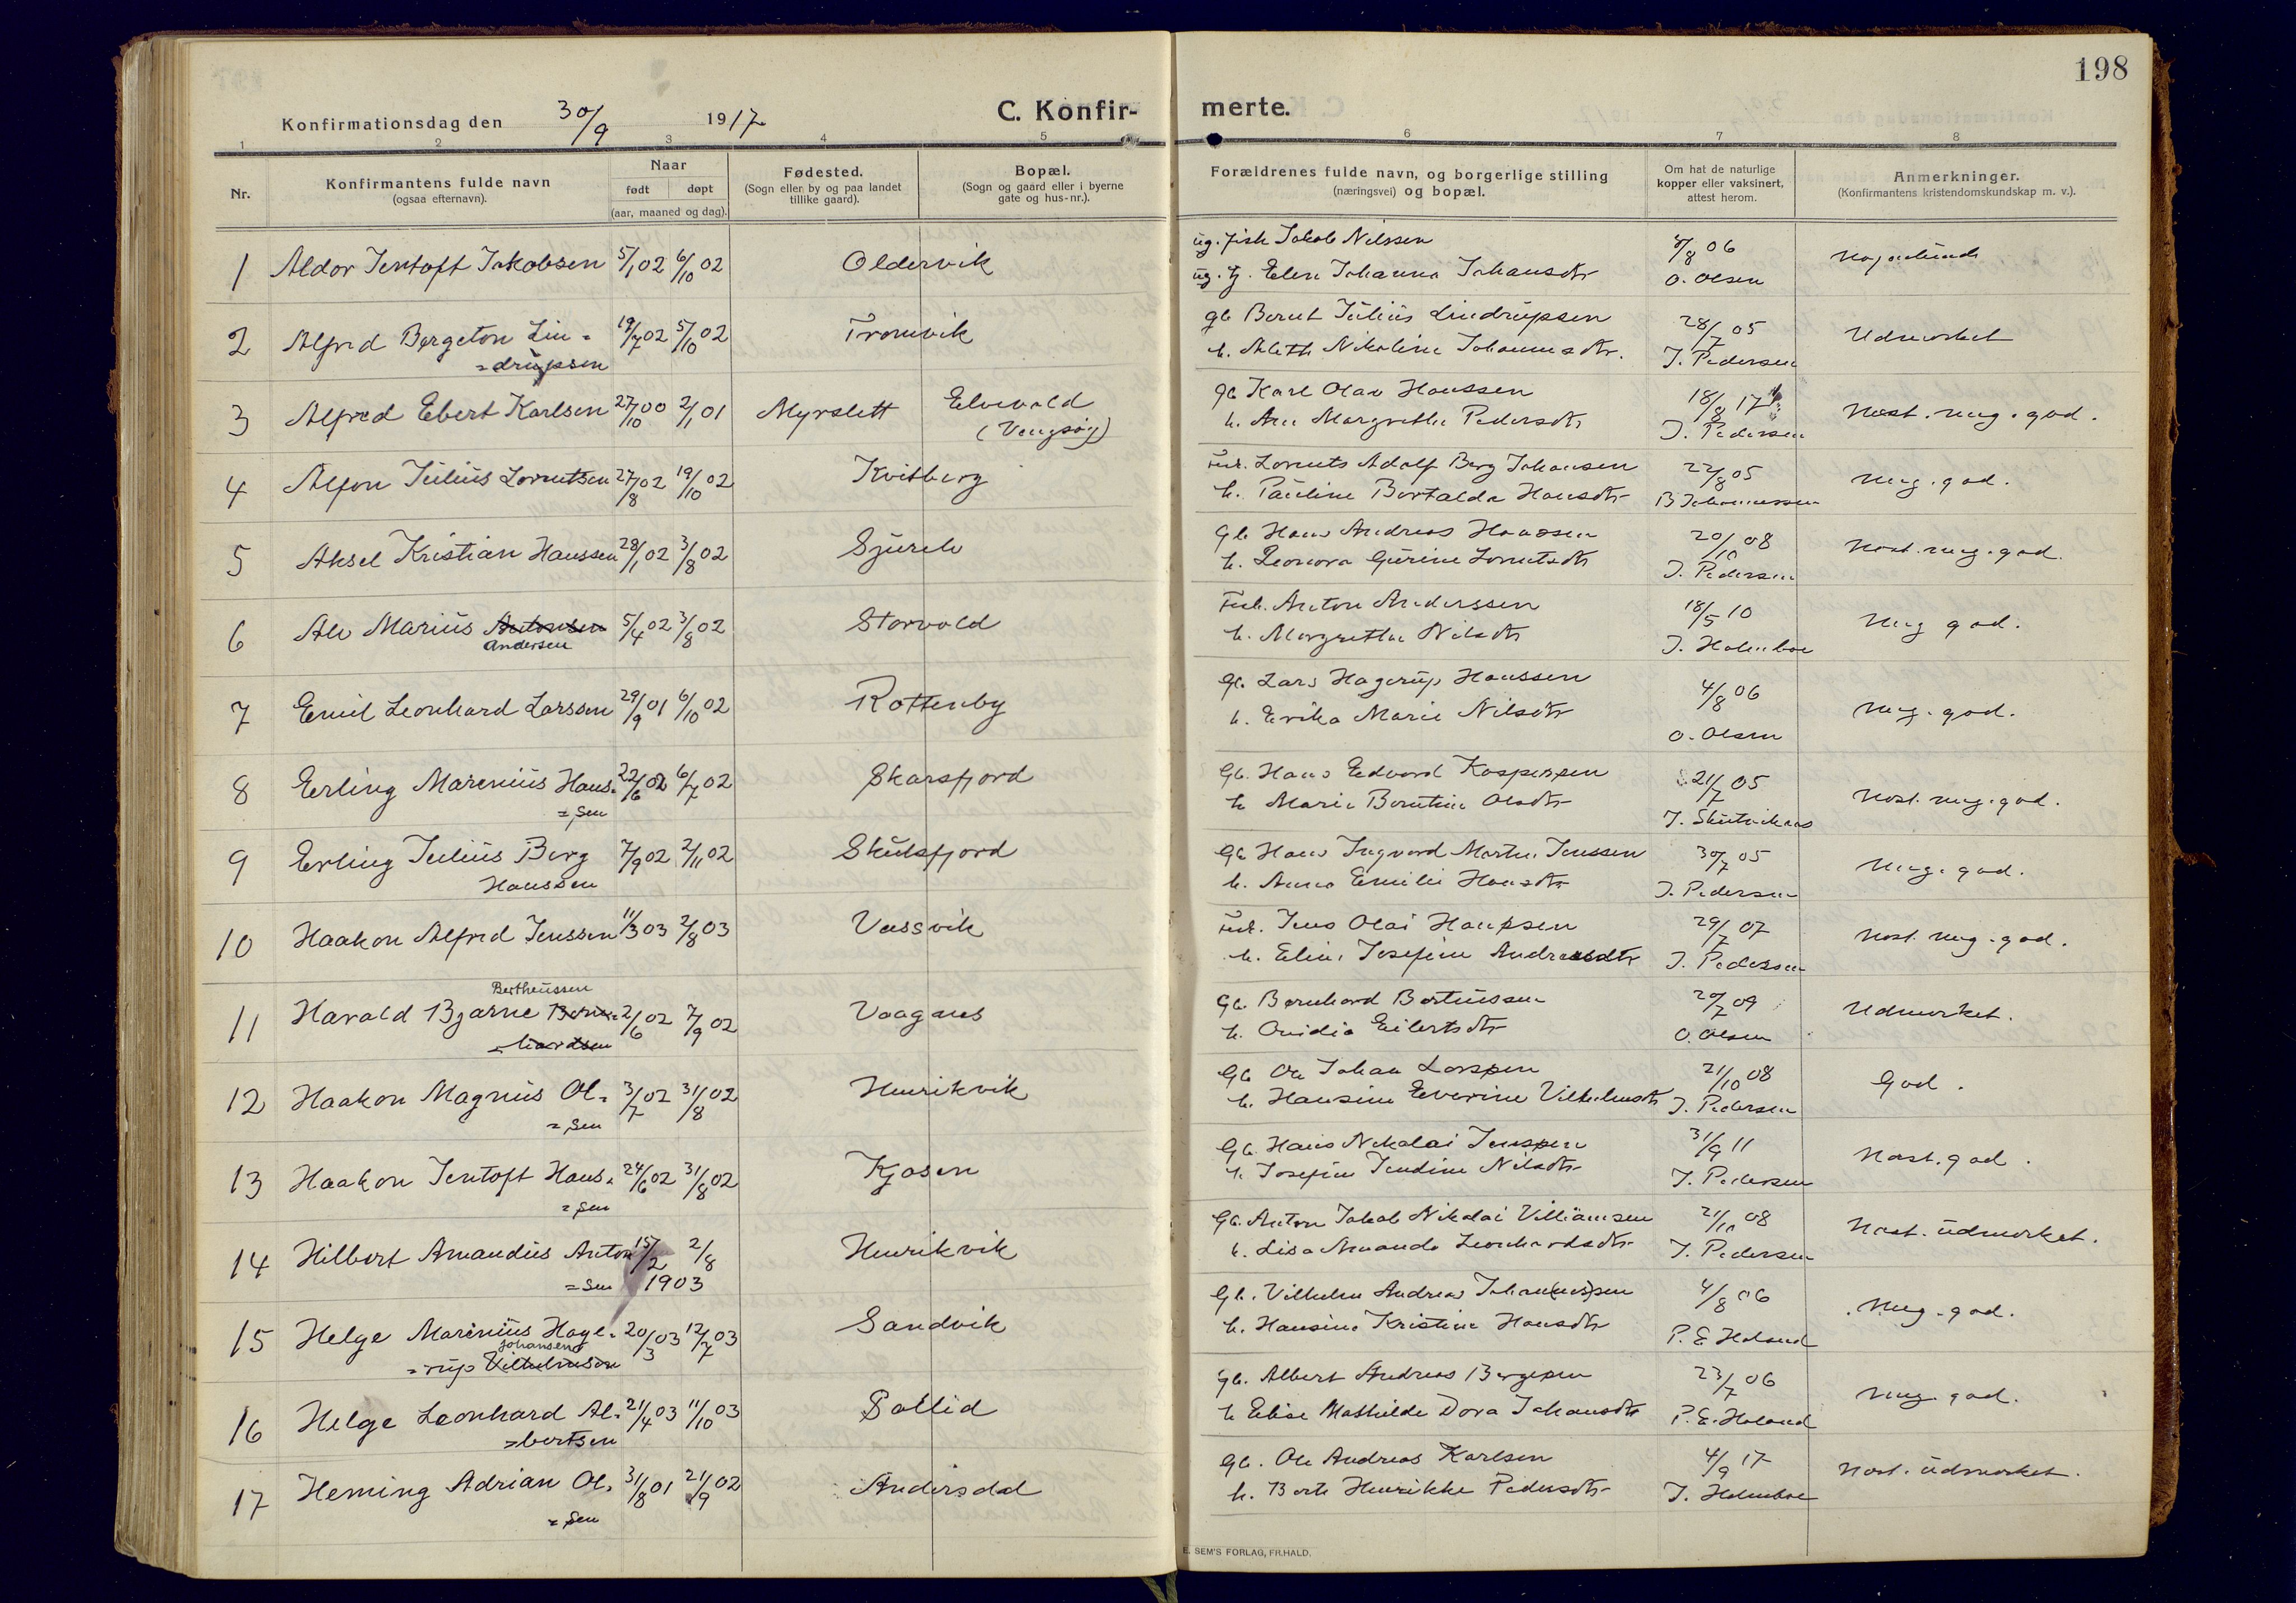 198
Konfirmationsdag den 30/9 1917 C. Konfirmerte.
1 2 3 4 5 6 7 8
Nr. Konfirmantens fulde navn (ogsaa efternavn). Naar født døpt (aar, maaned og dag). Fødested. (Sogn eller by og paa landet tillike gaard). Bopæl. (Sogn og gaard eller i byerne gate og hus-nr.). Forældrenes fulde navn, og borgerlige stilling (næringsvei) og bopæl. Om hat de naturlige kopper eller vaksinert, attest herom. Anmerkninger. (Konfirmantens kristendomskundskap m. v.).
1 Aldor Jentoft Jakobsen 5/1 02 6/10 02 Oldervik ug. fisk Jakob Nilssen 4/8 06
ug. tj. Elen Johanna Johansdtr O. Olsen
2 Alfred Bergeton Lin= 19/7 02 5/10 02 Tromvik gb Bernt Julius Lindrupsen 28/7 05 Udmerket
=drupsen h. Aleth Nikoline Johannesdtr. J. Pedersen
3 Alfred Ebert Karlsen 27/10 00 2/1 01 Myrslett Elvevold gb Karl Olav Hanssen 18/8 17 Næst. meg. god.
(Vengsøy) h. Ane Margrethe Pedersdtr J. Pedersen
4 Alfon Julius Lorentsen 27/8 02 19/10 02 Kvitberg Lorents Adolf Berg Johansen 22/8 05 Meg. god.
h. Pauline Bertalda Hansdtr B Johannessen
5 Aksel Kristian Hanssen 28/1 02 3/8 02 Sjursh Gb Hans Andreas Hanssen 20/10 08 Næst. meg. god.
h. Leonora Gurine Lorentsdtr J. Pedersen
6 Alv Marius Antonsen 5/4 02 3/8 02 Storvold Anton Anderssen 18/5 10 Meg god.
Andersen h. Margrethe Nilsdtr J. Holmboe
7 Emil Leonhard Larssen 29/9 01 6/10 02 Rottenby Gb. Lars Hagerup Hanssen 4/8 06 Meg. god.
h. Erika Marie Nilsdtr O. Olsen
8 Erling Marenius Hans= 22/6 02 6/7 02 Skarsfjord Gb. Hans Edvard Kaspersen 21/7 05 Næst. meg. god.
=sen h Marie Berntine Olsdtr J.
9 Erling Julius Berg 7/9 02 2/11 02 Skulsfjord Gb Hans Ingvard Martin Jenssen 30/7 05 Meg. god.
Hanssen h. Anna Emilie Hansdtr J. Pedersen
10 Haakon Alfred Jenssen 11/3 03 2/8 03 Vassvik Jens Olai Hanssen 29/7 07 Næst. meg. god.
h. Eline Josefine Andreasdtr J. Pedersen
Bertheussen
11 Harald Bjarne Bern= 2/6 02 7/9 02 Vaagnes Gb. Bernhard Berteussen 20/7 09 Udmerket.
=hardsen h. Ovidia Eilertsdtr O. Olsen
12 Haakon Magnus Ol= 3/7 02 31/8 02 Henrikvik Gb Ole Johan Larssen 21/10 08 God.
=sen h. Hansine Everine Vilhelmsdtr J. Pedersen
13 Haakon Jentoft Hans= 24/6 02 31/8 02 Kjosen Gb. Hans Nikolai Jenssen 31/9 11 Næst. god.
=sen h. Josefine Jendine Nilsdtr J. Pedersen
14 Hilbert Amandus Anton 15/2 2/8 Henrikvik Gb. Anton Jakob Nikolai Villiamsen 21/10 08 Næst. udmerket.
=sen 1903 h. Lisa Amanda Leonhardsdtr J. Pedersen
15 Helge Marenius Hage= 20/3 03 12/7 03 Sandvik Gb. Vilhelm Andreas Johan(nes)sen 4/8 06 Meg. god.
Johansen
=rup Vilhelmsen h. Hansine Kristine Hansdtr P. E. Holand
16 Helge Leonhard Al= 21/4 03 11/10 03 Sollid Gb. Albert Andreas Bergesen 23/7 06 Meg. god.
=bertsen h Elise Mathilde Dora Johansdtr P. E. Holand
17 Heming Adrian Ol= 31/8 01 21/9 02 Andersdal Gb. Ole Andreas Karlsen 4/9 17 Næst. udmerket.
=sen h. Berte Henrikke Pedersdtr J. Holmboe
E. SEM'S FORLAG, FR.HALD.